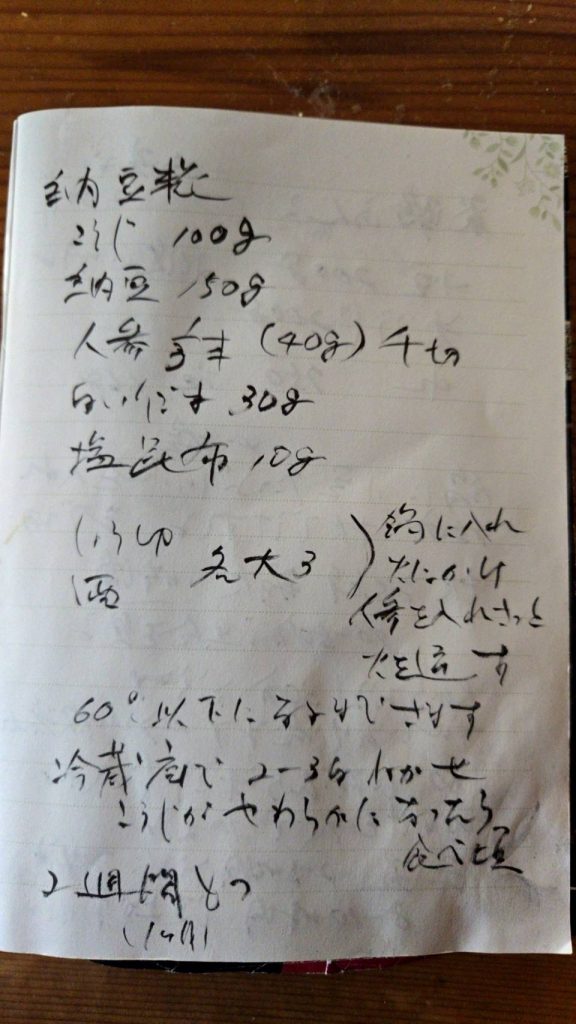 納豆糀
こうじ 100g
納豆 150g
人参 1/3本 (40g) 千切
白いりごま 30g
塩昆布 10g
しょうゆ
酒
各大3
鍋に入れ
火にかけ
人参を入れさっと
火を通す
60°以下になるまでさます
冷蔵庫で 2-3日 ねかせ
こうじがやわらかになったら
食べ頃
2週間もつ
(1ヶ月)